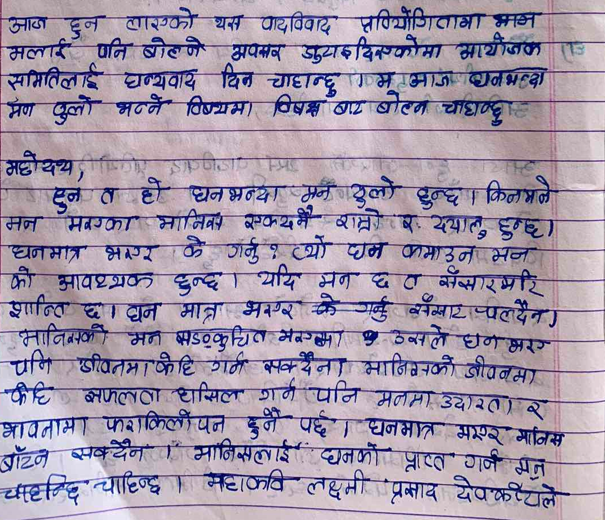 आज हुन लाएको यस वादविवाद प्रतियोगितामा भाग
मलाई पनि बोल्ने अवसर जुटाइदिएकोमा आयोजक
समितिलाई धन्यवाद दिन चाहान्छु । म आज धनभन्दा
मन ठुलो भन्ने विषयमा विपक्ष बाट बोल्न चाहान्छु
महोदय,
हुन त हो धनभन्दा मन ठुलो हुन्छ । किनभने
मन भएका मानिस एकदमै राम्रो र दयालु हुन्छ।
धनमात्र भएर के गर्नु ? त्यो धन कमाउन मन
को आवश्यक हुन्छ । यदि मन छ त सँसारभरि
शान्ति छ। धन मात्र भएर के गर्नु सँसार चल्दैन।
मानिसको मन सङकुचित भएमा उसले धन भए
पनि जीवनमा केहि गर्न सक्दैन। मानिसको जीवनमा
केहि सफलता हासिल गर्न पनि मनमा उदारता र
भावनामा फराकिलोपन हुनै पर्छ । धनमात्र भएर मानिस
बाँच्न सक्दैन । मानिसलाई धनको प्राप्त गर्न मन
चाहिन्छ । महाकवि लक्ष्मी प्रसाद देवकोटाले